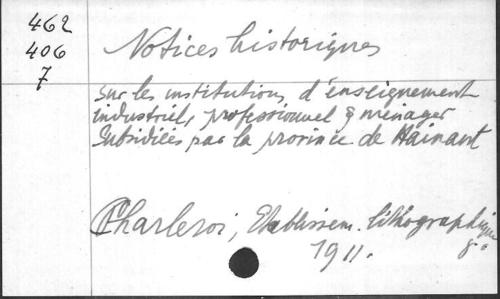 462
406
7
Notices historiques
sur les institutions d'enseignement
industriel, professionnel & ménager
subsidiées par la province de Hainaut
Charleroi, Etablissem. lithographique
8°
1911.